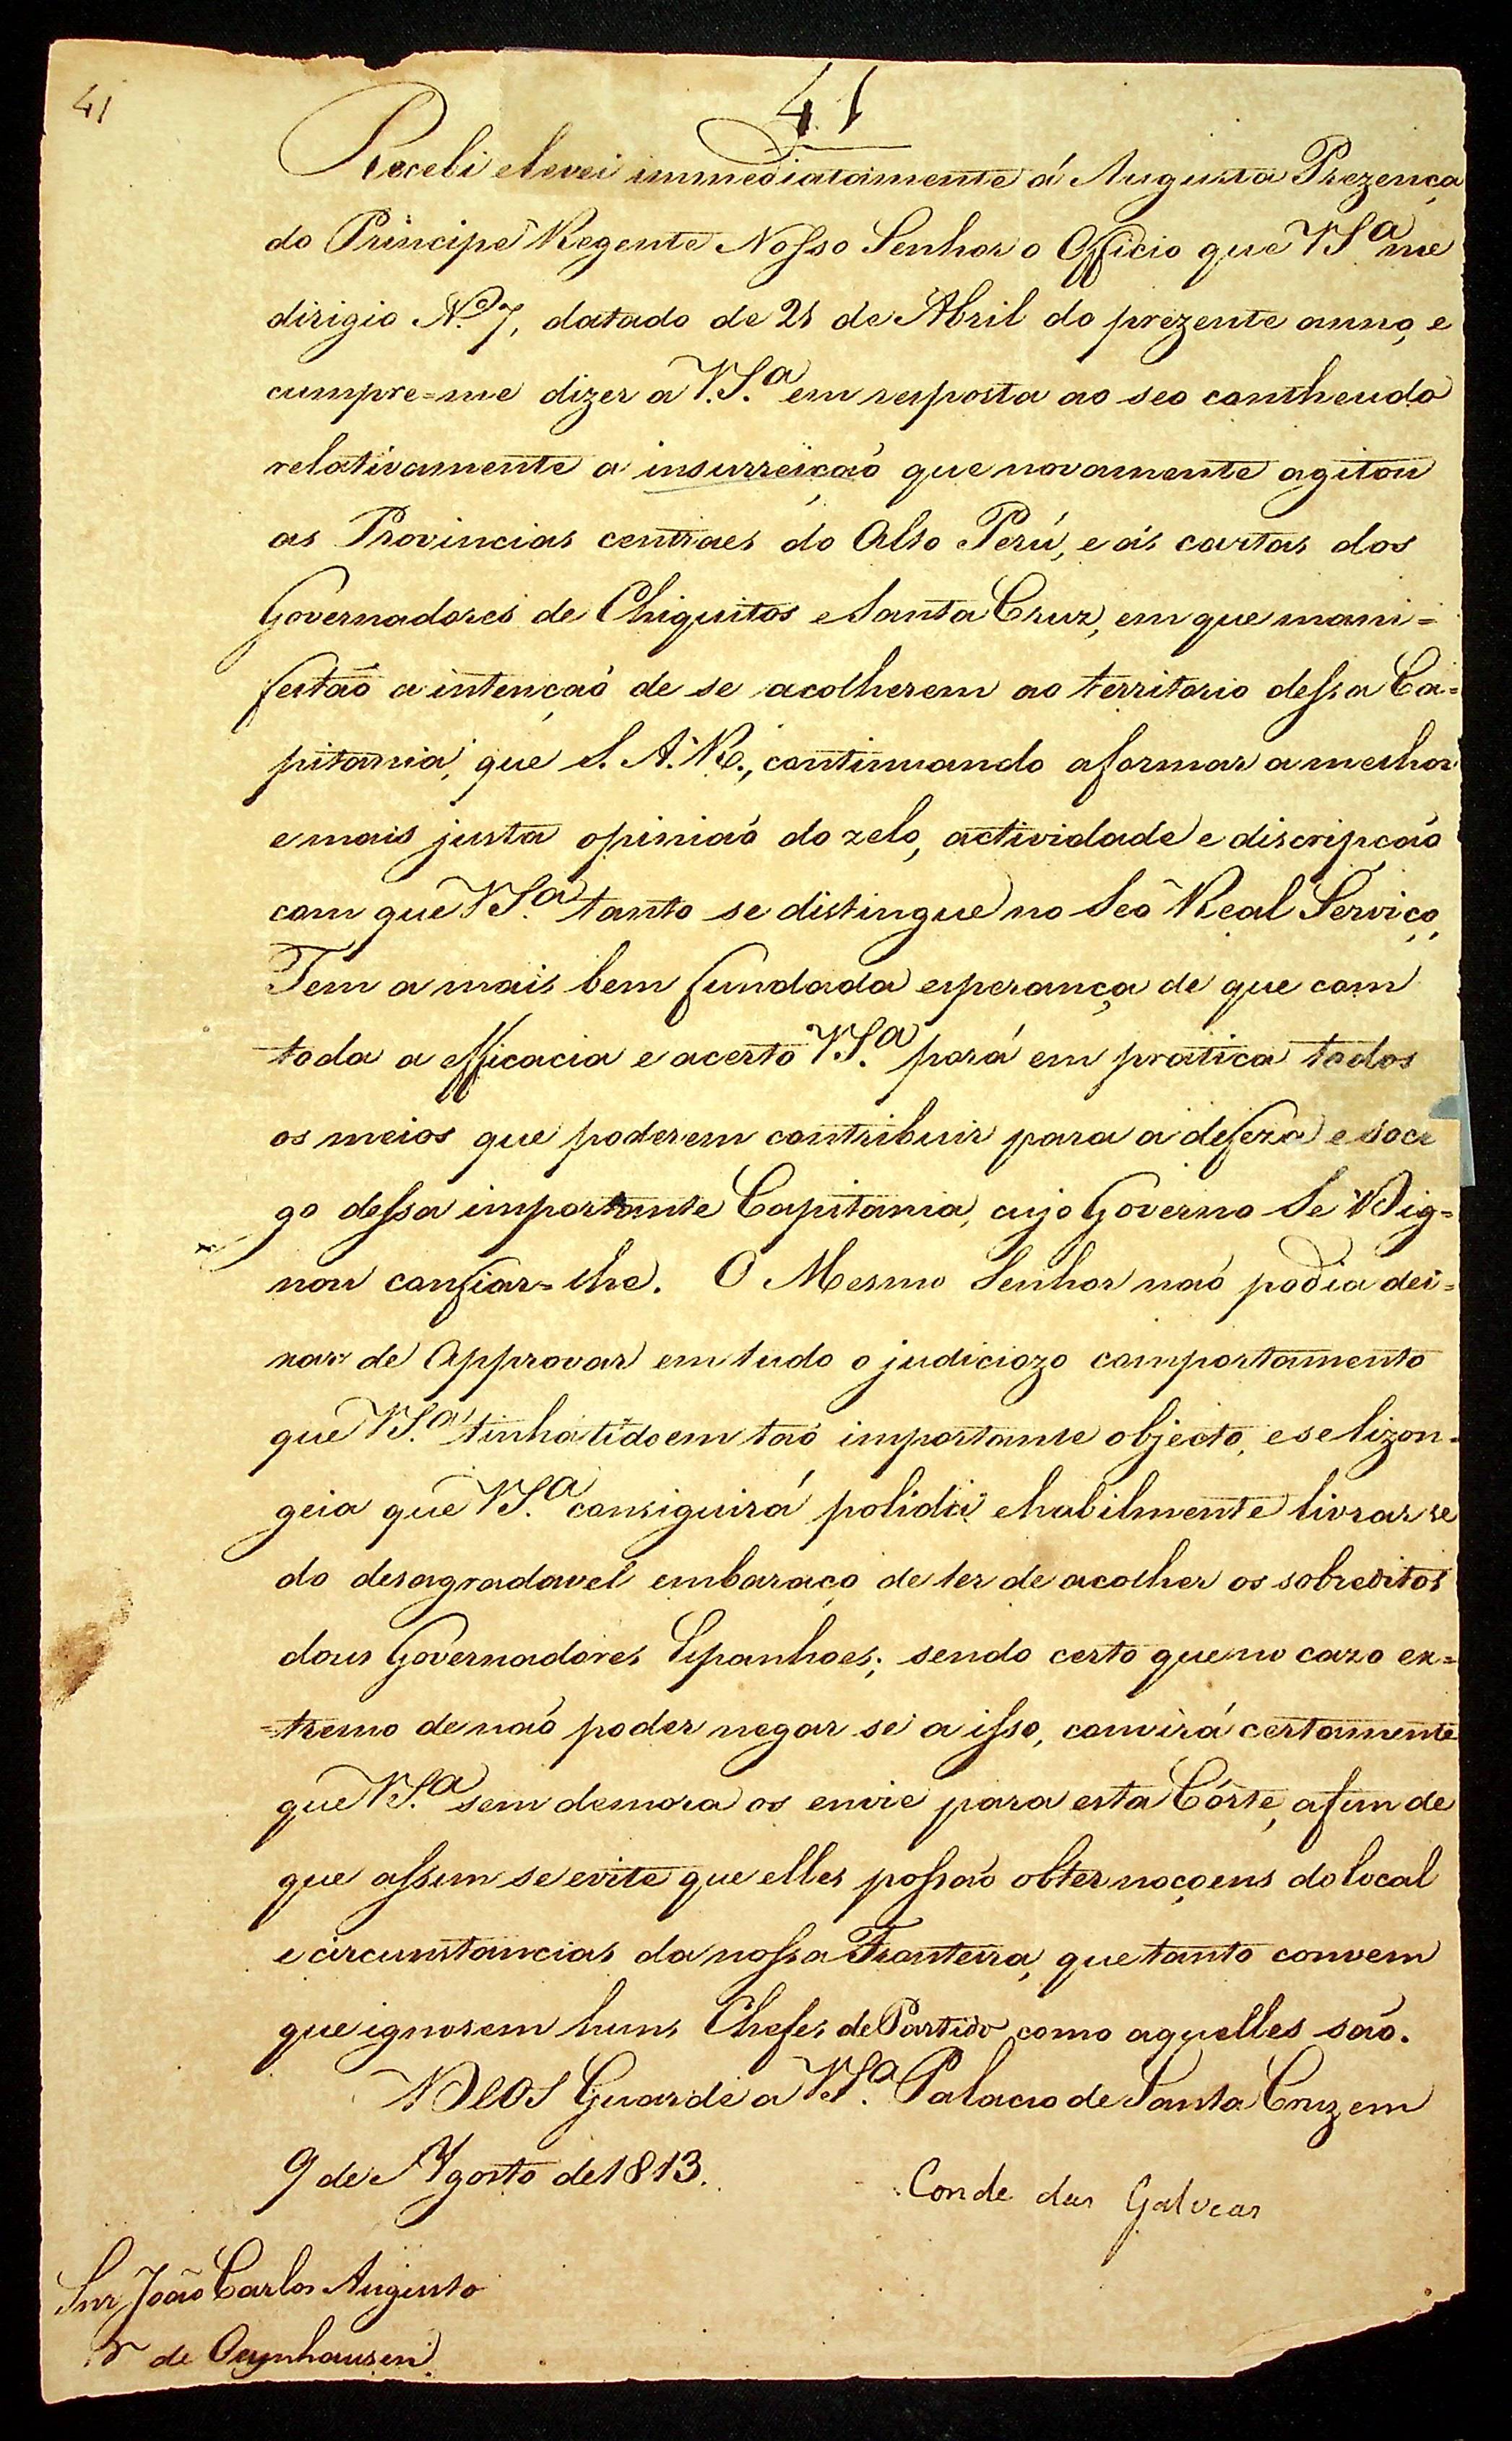 41
41
Recebi e levei immediatamente á Augusta Prezença
do Principe Regente Nosso Senhor o Officio que VS.ª me
dirigio N.º 7, datado de 21 de Abril do prezente anno, e
cumpre=me dizer a V.S.ª em resposta ao seo contheudo
relativamente a insurreição que novamente agitou
as Provincias centraes do Alto Perú, e ás cartas dos
Governadores de Chiquitos e Santa Cruz, em que mani=
festão a intenção de se acolherem ao territorio dessa Ca=
pitania, que S. A. R., continuando a formar a melhor
e mais justa opinião do zelo, actividade e discripção
com que VS.ª tanto se distingue no Seo Real Serviço,
Tem a mais bem fundada esperança de que com
toda a efficacia e acerto V.S.ª porá em pratica todos
os meios que poderem contribuir para a defeza e soce
go dessa importante Capitania, cujo Governo Se Dig=
nou confiar=lhe. O Mesmo Senhor não podia dei=
xar de Approvar em tudo o judiciozo comportamento
que VS.ª tinha tido em tão importante objecto, e se lizon=
geia que VS.ª consiguirá polida e habilmente livrar se
do desagradavel embaraço de ter de acolher os sobreditos
dous Governadores Espanhoes; sendo certo que no cazo ex=
=tremo de não poder negar se a isso, convirá certamente
que VS.ª sem demora os envie para esta Côrte, afim de
que assim se evite que elles possão obter noçoens do local
e circunstancias da nossa Fronteira, que tanto convem
que ignorem huns Chefes de Partido como aquelles são.
DEOS Guarde a VS.ª Palacio de Santa Cruz em
9 de Agosto de 1813.
Conde das Galveas
Snr João Carlos Augusto
de Oeynhausen